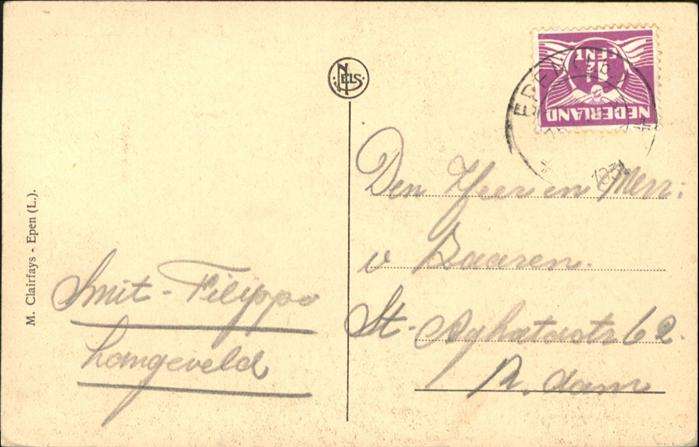 M. Clairfays - Epen (L.).
NELS
NEDERLAND
CENT
EPEN
Smit - Filippo
Langeveld
Den Heer en Mevr.
v Baaren.
St. Aghatastr 62
R. dam